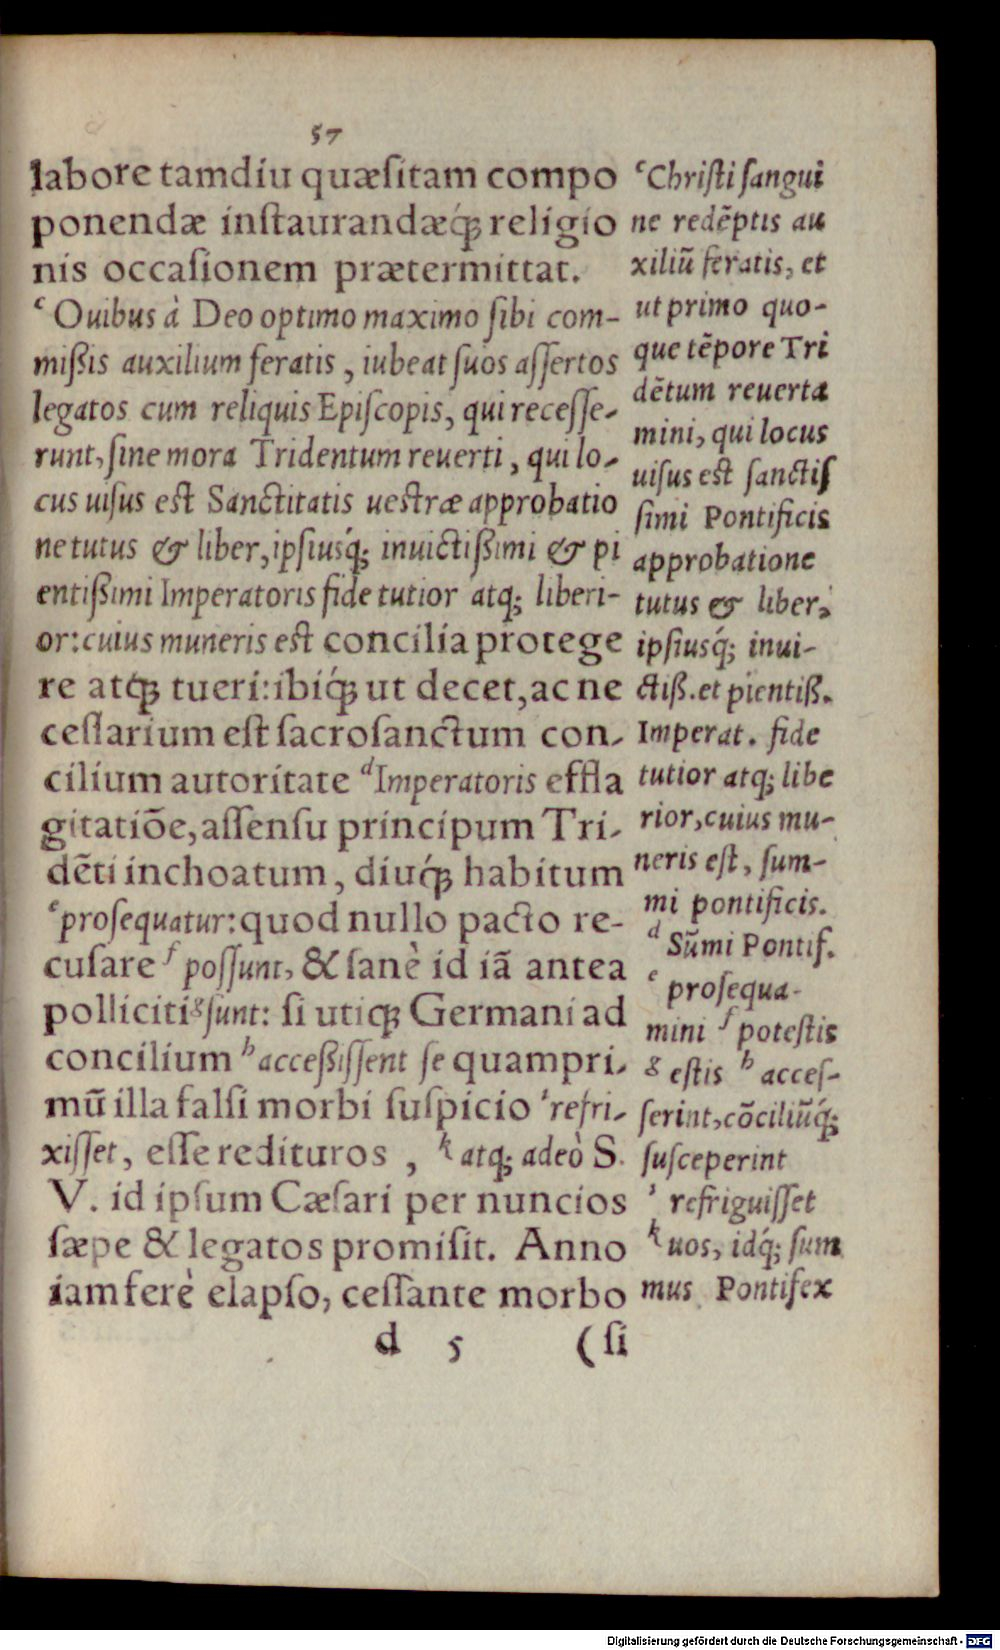 57
labore tamdiu quæsitam compo
ponendæ instaurandæq́ꝫ religio
nis occasionem prætermittat.
ᶜ Ouibus à Deo optimo maximo sibi com-
mißis auxilium feratis, iubeat suos assertos
legatos cum reliquis Episcopis, qui recesse-
runt, sine mora Tridentum reuerti, qui lo-
cus uisus est Sanctitatis uestræ approbatio
ne tutus & liber, ipsiusq́; inuictißimi & pi
entißimi Imperatoris fide tutior atq; liberi-
or: cuius muneris est concilia protege
re atqꝫ tueri: ibiq́ꝫ ut decet, ac ne
cessarium est sacrosanctum con-
cilium autoritate ᵈImperatoris effla
gitatiõe, assensu principum Tri-
dẽti inchoatum, diuq́ꝫ habitum
ᵉprosequatur: quod nullo pacto re-
cusare ᶠ possunt, & sanè id iã antea
polliciti ᵍsunt: si uticꝫ Germani ad
concilium ʰ acceßissent se quampri-
mũ illa falsi morbi suspicio ⁱrefri-
xisset, esse redituros, ᵏ atq; adeò S.
V. id ipsum Cæsari per nuncios
sæpe & legatos promisit. Anno
iam ferè elapso, cessante morbo
d 5 (si
ᶜChristi sangui
ne redẽptis au
xiliũ feratis, et
ut primo quo-
que tẽpore Tri
dẽtum reuerta
mini, qui locus
uisus est sanctis
simi Pontificis
approbatione
tutus & liber,
ipsiusq́; inui-
ctiß. et pientiß.
Imperat. fide
tutior atq; libe
rior, cuius mu-
neris est, sum-
mi pontificis.
ᵈ Sũmi Pontif.
ᵉ prosequa-
mini ᶠ potestis
ᵍ estis ʰ acces-
serint, cõciliũq́;
susceperint
ⁱ refriguisset
ᵏ uos, idq́; sum
mus Pontifex
Digitalisierung gefördert durch die Deutsche Forschungsgemeinschaft - DFG